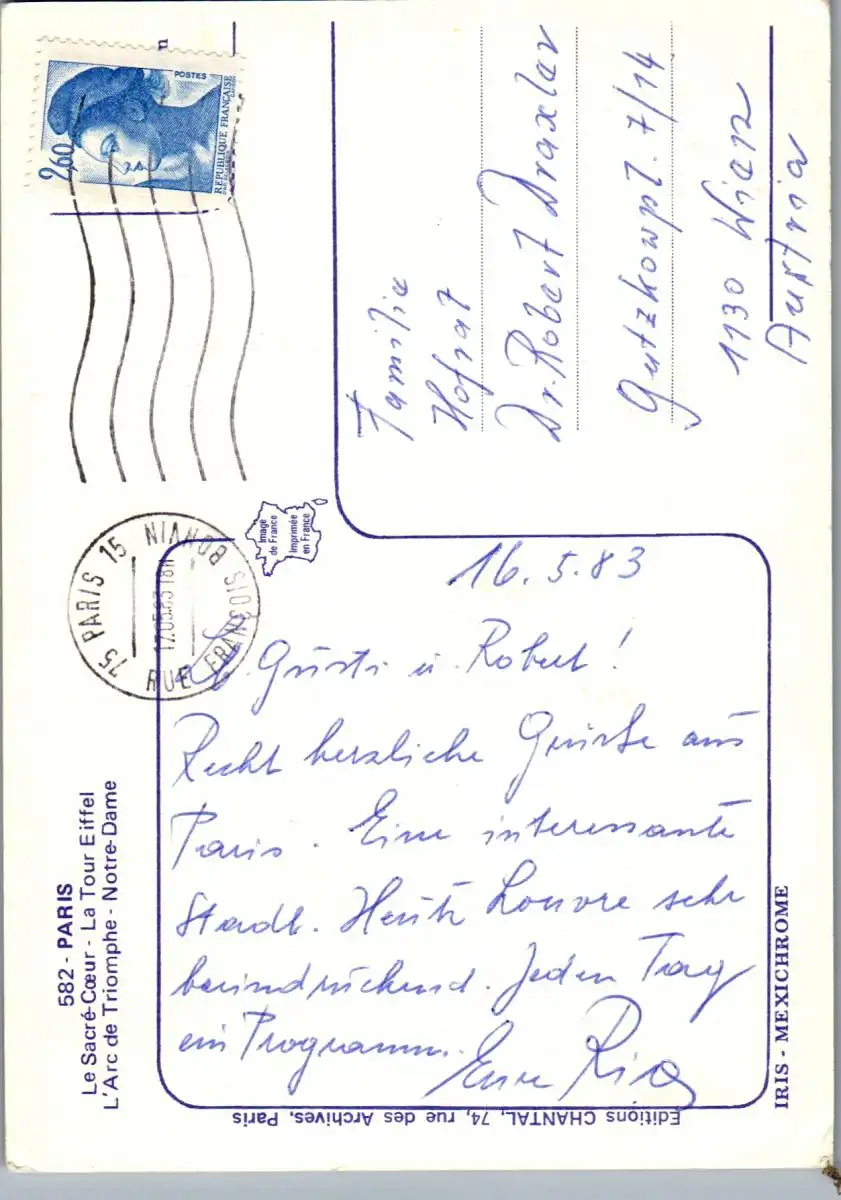 582 - PARIS
Le Sacré-Cœur - La Tour Eiffel
L'Arc de Triomphe - Notre-Dame
POSTES
2,60
REPUBLIQUE FRANÇAISE
75 PARIS 15
RUE FRANÇOIS BONVIN
17.05.83 18H
Image
de France
Imprimée
en France
16.5.83
Gusti u. Robert!
Recht herzliche Grüsse aus
Paris. Eine interessante
Stadt. Heute Louvre sehr
beeindruckend. Jeden Tag
ein Programm.
Eure Ria
Familie
Hofrat
Dr. Robert Draxler
Gutzkowpl. 7/14
1130 Wien
Austria
Editions CHANTAL, 74, rue des Archives, Paris
IRIS - MEXICHROME